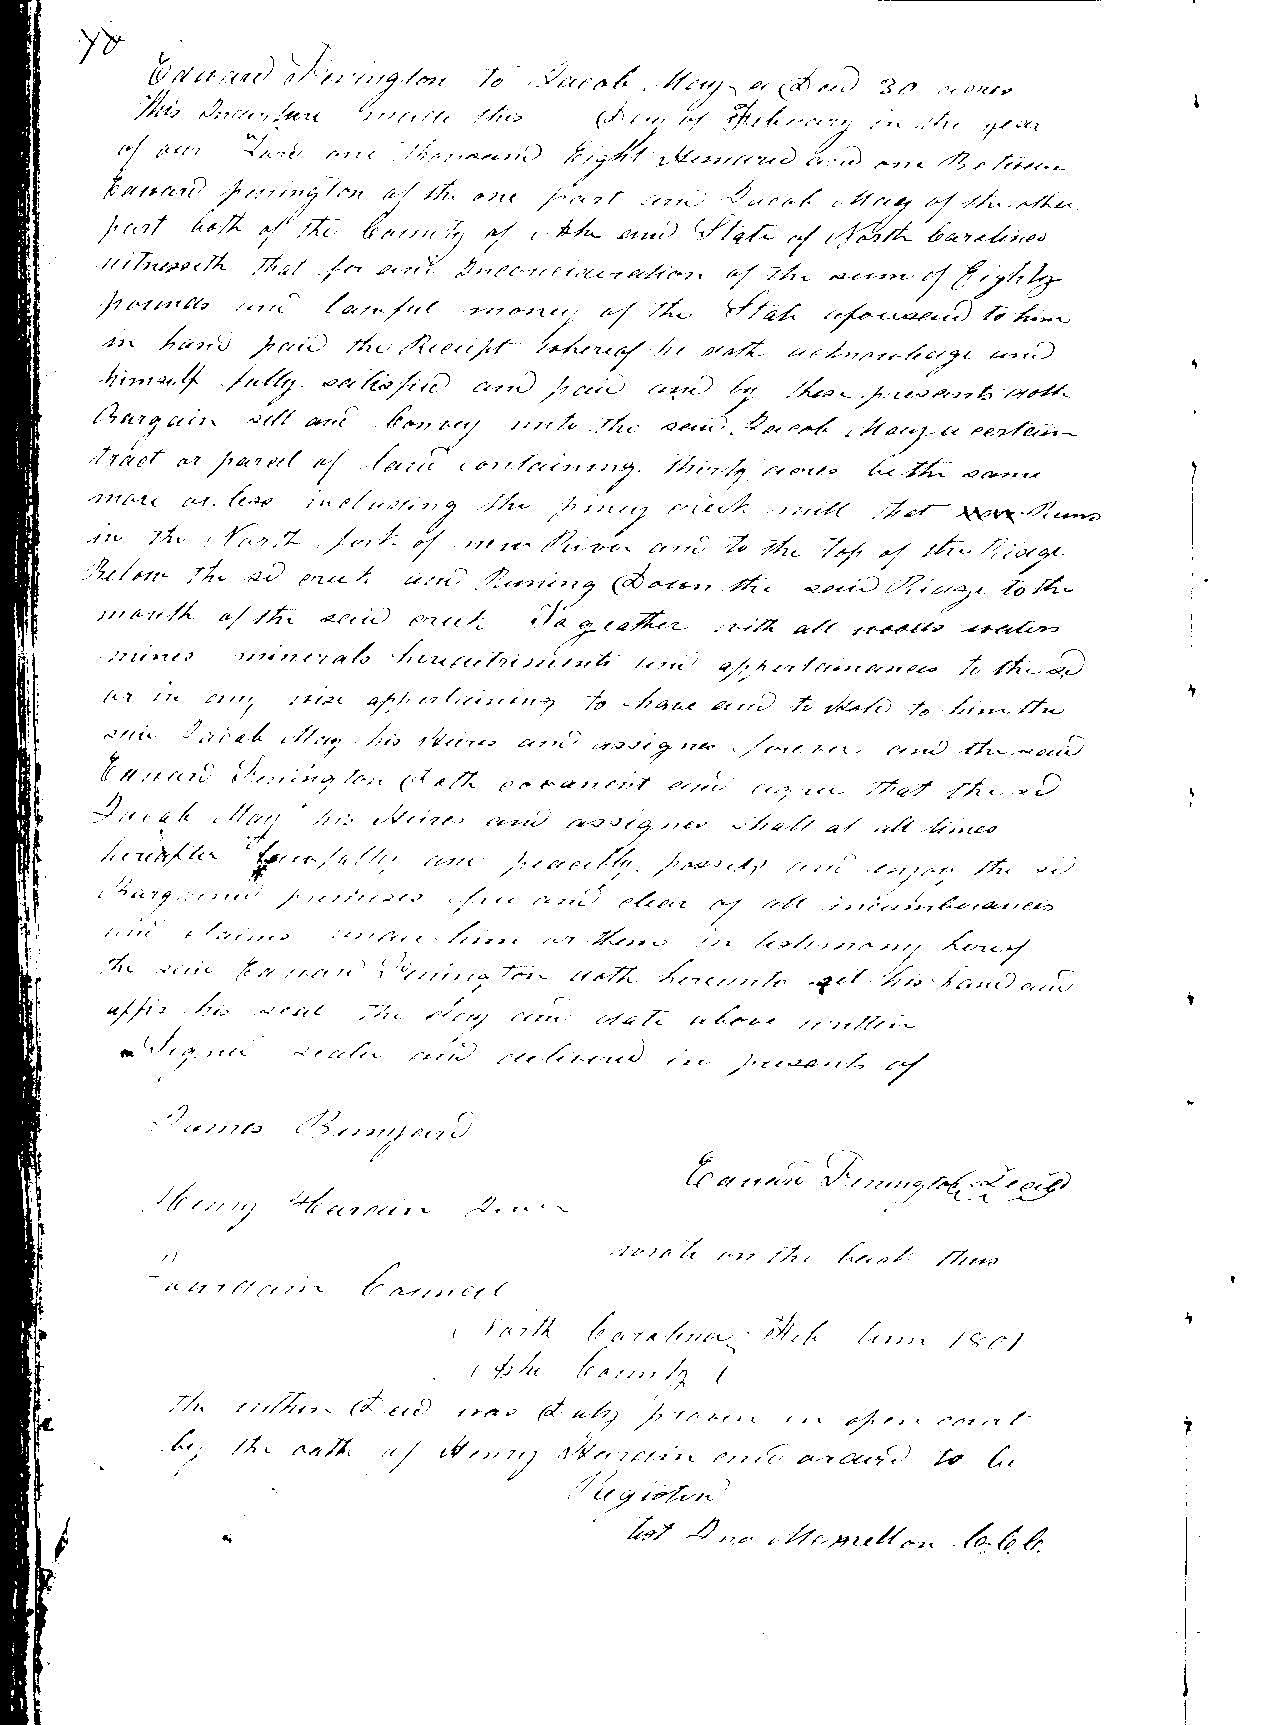 70
Edward Finington to Jacob May a Deed 30 acres
This Indenture made this Day of February in the year
of our Lord one thousand Eight Hundred and one Between
Edward finington of the one part and Jacob May of the other
part both of the County of Ashe and State of North Carolines
witnesseth that for and Inconcideration of the sum of Eighty
pounds and lawful money of the State aforesaid to him
in hand paid the Receipt whereof he doth acknowledge and
himself fully satisfied and paid and by these presents doth
Bargain sell and Convey unto the said Jacob May a certain
tract or parcel of land containing thirty acres be the same
more or less including the piney creek mill that Runs
in the North fork of new River and to the top of the Ridge
Below the sd creek and Runing Down the said Ridge to the
mouth of the said creek Togeather with all woods waters
mines minerals hereditriments and appertainances to the sd
or in any wise appertaining to have and to Hold to him the
said Jacob May his Heires and assignes forever and the said
Edward Finington Doth covanent and agree that the sd
Jacob May his Heires and assignes shall at all times
hereafter Lawfully and peacibly possess and enjoy the sd
Bargained premises free and clear of all incumberances
and claims under him or them in testimony hereof
the said Edward Finington doth hereunto set his hand and
affix his seal the day and date above written
Signed sealed and delivered in presents of
James Bunyard
Edward Finington Seal
Henry Hardin
wrote on the back thus
Jourdain Council
North Carolina Feb term 1801
Ashe County
the within Deed was Duly proven in open court
by the oath of Henry Hardin and ordard to be
Registerd
test Jno McMellon C.C.C.